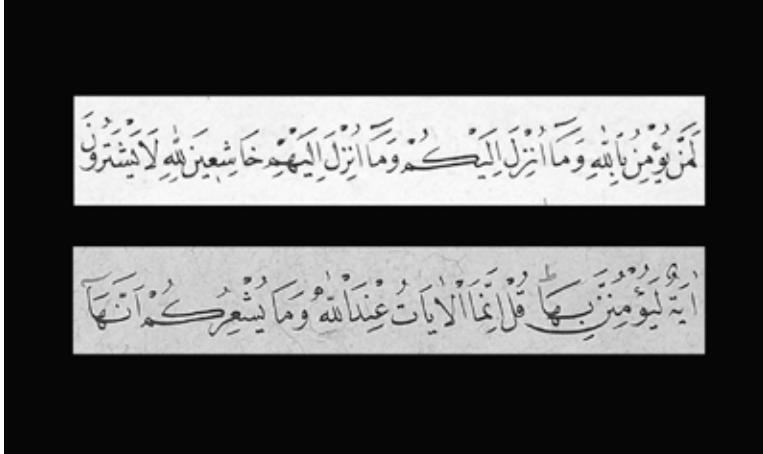 لَمَنْ يُؤْمِنُ بِاللّٰهِ وَمَآ اُنْزِلَ اِلَيْكُمْ وَمَآ اُنْزِلَ اِلَيْهِمْ خَاشِعِينَ لِلّٰهِ لَا يَشْتَرُونَ
اٰيَةٌ لَيُؤْمِنُنَّ بِهَا ط قُلْ اِنَّمَا الْاٰيَاتُ عِنْدَ اللّٰهِ وَمَا يُشْعِرُكُمْ اَنَّهَآ